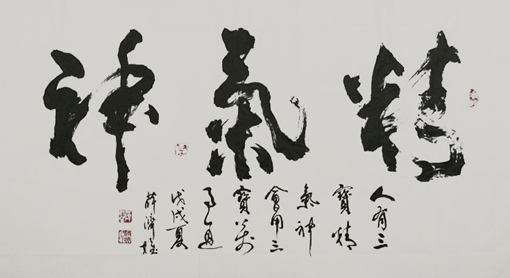 精氣神
人有三
寶精
氣神
會用三
寶
戊戌夏
薛